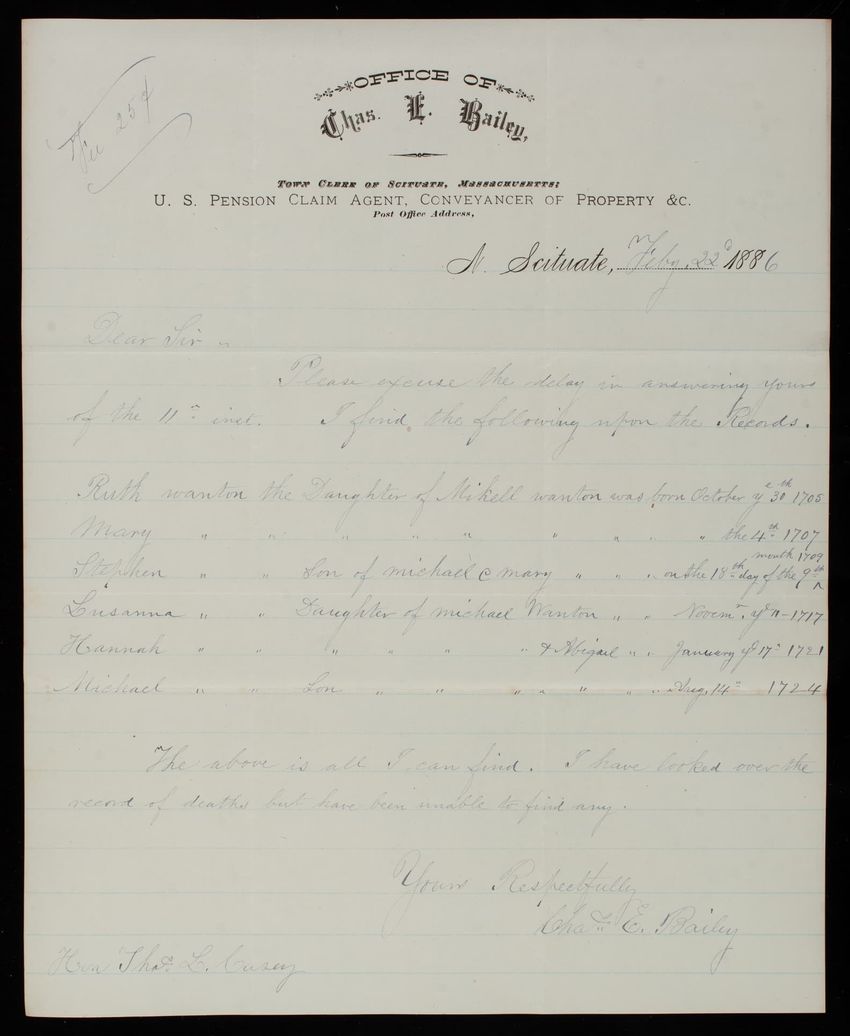 Fee 25¢
OFFICE OF
Chas. E. Bailey,
Town Clerk of Scituate, Massachusetts;
U. S. Pension Claim Agent, Conveyancer of Property &c.
Post Office Address,
N. Scituate, Feby. 22d 1886
Dear Sir "
Please excuse the delay in answering yours
of the 11th inst. I find the following upon the Records.
Ruth wanton the Daughter of Mikell wanton was born October ye 30th 1705
Mary " " " " " " " " " the 4th 1707
Stephen " " Son of michael & mary " " " on the 18th day of the 9th month 1709
Susanna " " Daughter of michael Wanton " " Novemr ye 11 - 1717
Hannah " " " " " " & Abigail " " January ye 17th 1721
Michael " " Son " " " " " " " Aug. 14th 1724
The above is all I can find. I have looked over the
record of deaths but have been unable to find any.
Yours Respectfully
Chas. E. Bailey
Hon Thos. L. Casey